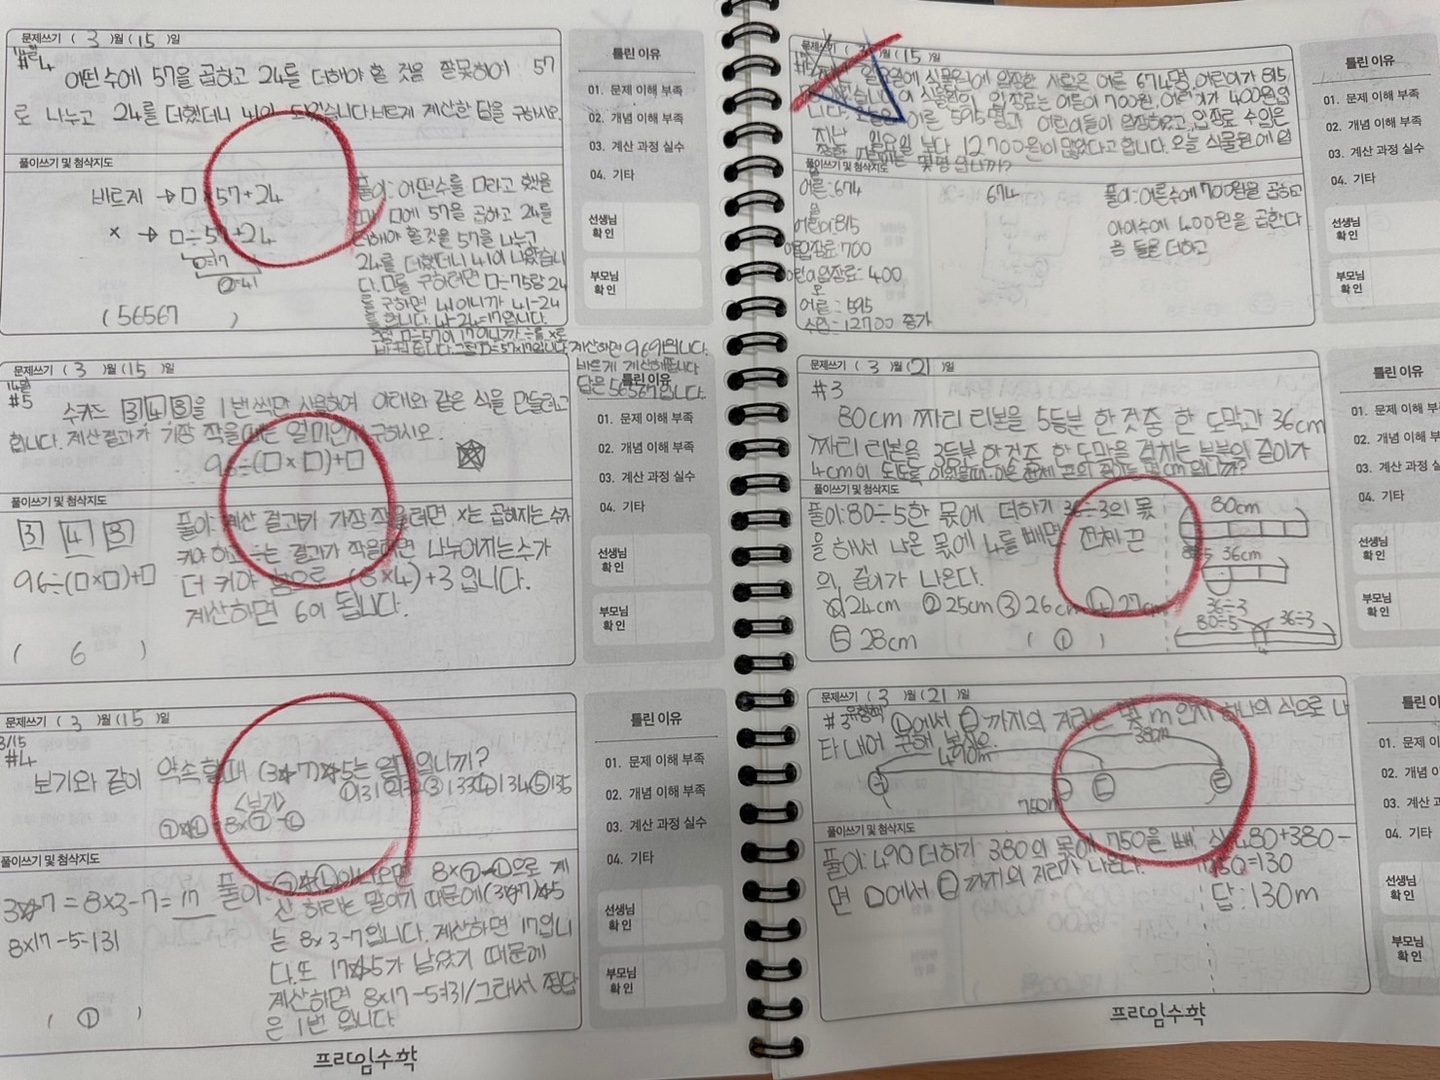 문제쓰기 ( 3 )월 ( 15 )일
#4
어떤수에 57을 곱하고 24를 더해야 할 것을 잘못하여 57
로 나누고 24를 더했더니 41이 되었습니다. 바르게 계산한 답을 구하시오.
풀이쓰기 및 첨삭지도
바르게 → □×57+24
× → □÷57+24
(56567 )
풀이: 어떤수를 □라고 했을
때 □에 57을 곱하고 24를
더해야 할것을 57을 나누고
24를 더했더니 41이 나왔습니
다. □를 구하려면
를 구하면 41이니까 41-24
를 합니다. 41-24=17입니다.
계산하면 969입니다.
바르게 계산해봅니다
답은 56567입니다.
틀린 이유
01. 문제 이해 부족
02. 개념 이해 부족
03. 계산 과정 실수
04. 기타
선생님
확 인
부모님
확 인
문제쓰기 ( 3 )월 ( 15 )일
#5
수카드 3 4 8을 1번씩만 사용하여 아래와 같은 식을 만들려고
합니다. 계산결과가 가장 작을때는 얼마인지 구하시오.
96÷(□×□)+□
풀이쓰기 및 첨삭지도
3 4 8
96÷(□×□)+□
( 6 )
풀이: 계산 결과가 가장 작을려면 ×는 곱해지는 수가
커야 하고 ÷는 결과가 작을려면 나누어지는수가
더 커야 함으로 (8×4)+3 입니다.
계산하면 6이 됩니다.
틀린 이유
01. 문제 이해 부족
02. 개념 이해 부족
03. 계산 과정 실수
04. 기타
선생님
확 인
부모님
확 인
문제쓰기 ( 3 )월 ( 15 )일
3/15
#4
보기와 같이 약속할때 (3☆7)☆5는 얼마입니까?
①131 ②132 ③133 ④134 ⑤135
<보기>
㉠☆㉡=8×㉠-㉡
풀이쓰기 및 첨삭지도
3☆7=8×3-7=17
8×17-5=131
( ① )
풀이: ㉠☆㉡이 나오면 8×㉠-㉡으로 계
산 하라는 말이기 때문에 (3☆7)☆5
는 8×3-7입니다. 계산하면 17입니
다. 또 17☆5가 남았기 때문에
계산하면 8×17-5=131 그래서 정답
은 1번 입니다
틀린 이유
01. 문제 이해 부족
02. 개념 이해 부족
03. 계산 과정 실수
04. 기타
선생님
확 인
부모님
확 인
프라임수학
문제쓰기 ( 3 )월 ( 15 )일
일요일에 식물원에 입장한 사람은 어른 674명, 어린이가 815
이 식물원의 입장료는 어른이 700원, 어린이가 400원입
니다. 오늘은 어른 595명과 어린이들이 입장하였고, 입장료 수입은
지난 일요일 보다 12700원이 많았다고 합니다. 오늘 식물원에 입
장한 어린이는 몇명 입니까?
풀이쓰기 및 첨삭지도
어른: 674
어린이: 815
어른입장료: 700
어린이입장료: 400
오
어른: 595
수입: 12700 증가
674
풀이: 어른수에 700원을 곱하고
아이수에 400원을 곱한다
음 둘을 더하고
틀린 이유
01. 문제 이해 부족
02. 개념 이해 부족
03. 계산 과정 실수
04. 기타
선생님
확 인
부모님
확 인
문제쓰기 ( 3 )월 ( 21 )일
#3
80cm 짜리 리본을 5등분 한 것중 한 도막과 36cm
짜리 리본을 3등분 한것중 한 도막을 겹치는 부분의 길이가
4cm이 되도록 이었을때, 이은 전체 끈의 길이는 몇 cm 입니까?
풀이쓰기 및 첨삭지도
풀이: 80÷5한 몫에 더하기 36÷3의 몫
을 해서 나온 몫에 4를 빼면 전체 끈
의 길이가 나온다.
①24cm ②25cm ③26cm ④27cm
⑤28cm ( ① )
80cm
36cm
36÷3
80÷5 36÷3
틀린 이유
01. 문제 이해 부
02. 개념 이해 부
03. 계산 과정 실
04. 기타
선생님
확 인
부모님
확 인
문제쓰기 ( 3 )월 ( 21 )일
#3 유형책 ㉡에서 ㉢까지의 거리는 몇 m 인지 하나의 식으로 나
타내어 구해 보시오.
490m
380m
750m
풀이쓰기 및 첨삭지도
풀이: 490 더하기 380의 몫에 750을 빼
면 ㉡에서 ㉢까지의 거리가 나온다.
식: 480+380-
750=130
답: 130m
틀린 이유
01. 문제 이
02. 개념 이
03. 계산 과
04. 기타
선생님
확 인
부모님
확 인
프라임수학